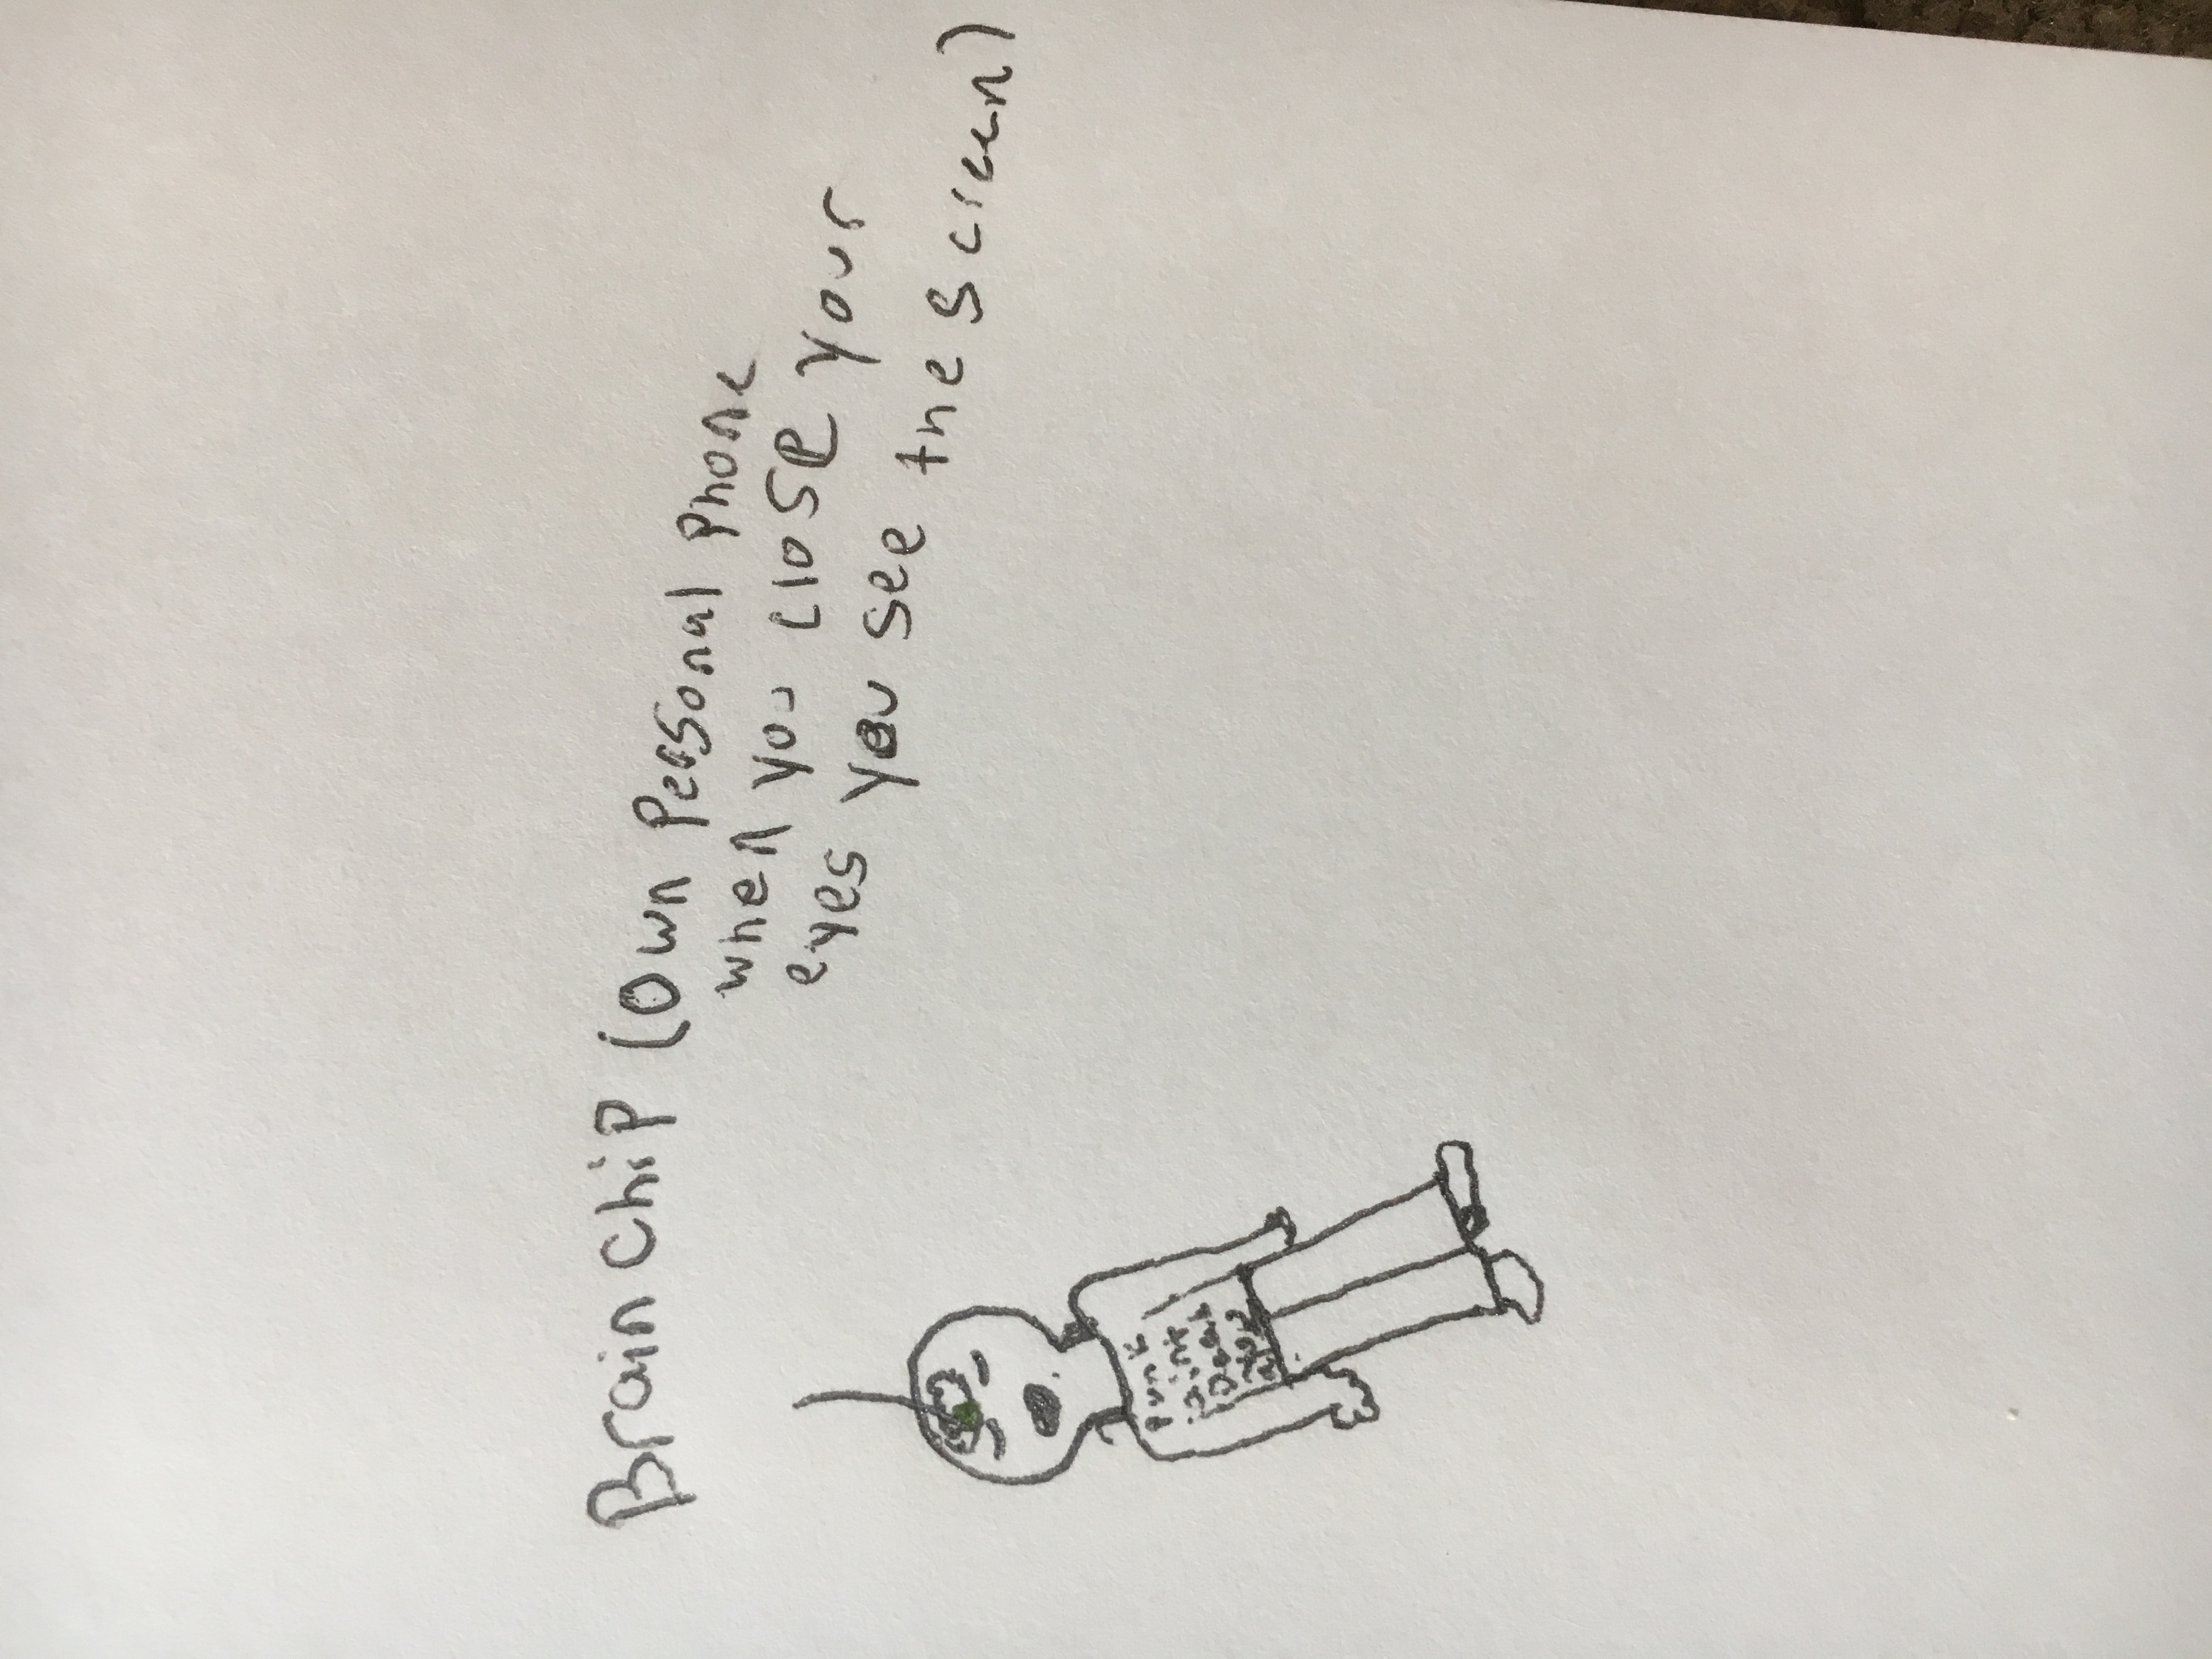 Brain chip (own Personal Phone
when you close your
eyes you see the screen)
Punk
isnt
Dead